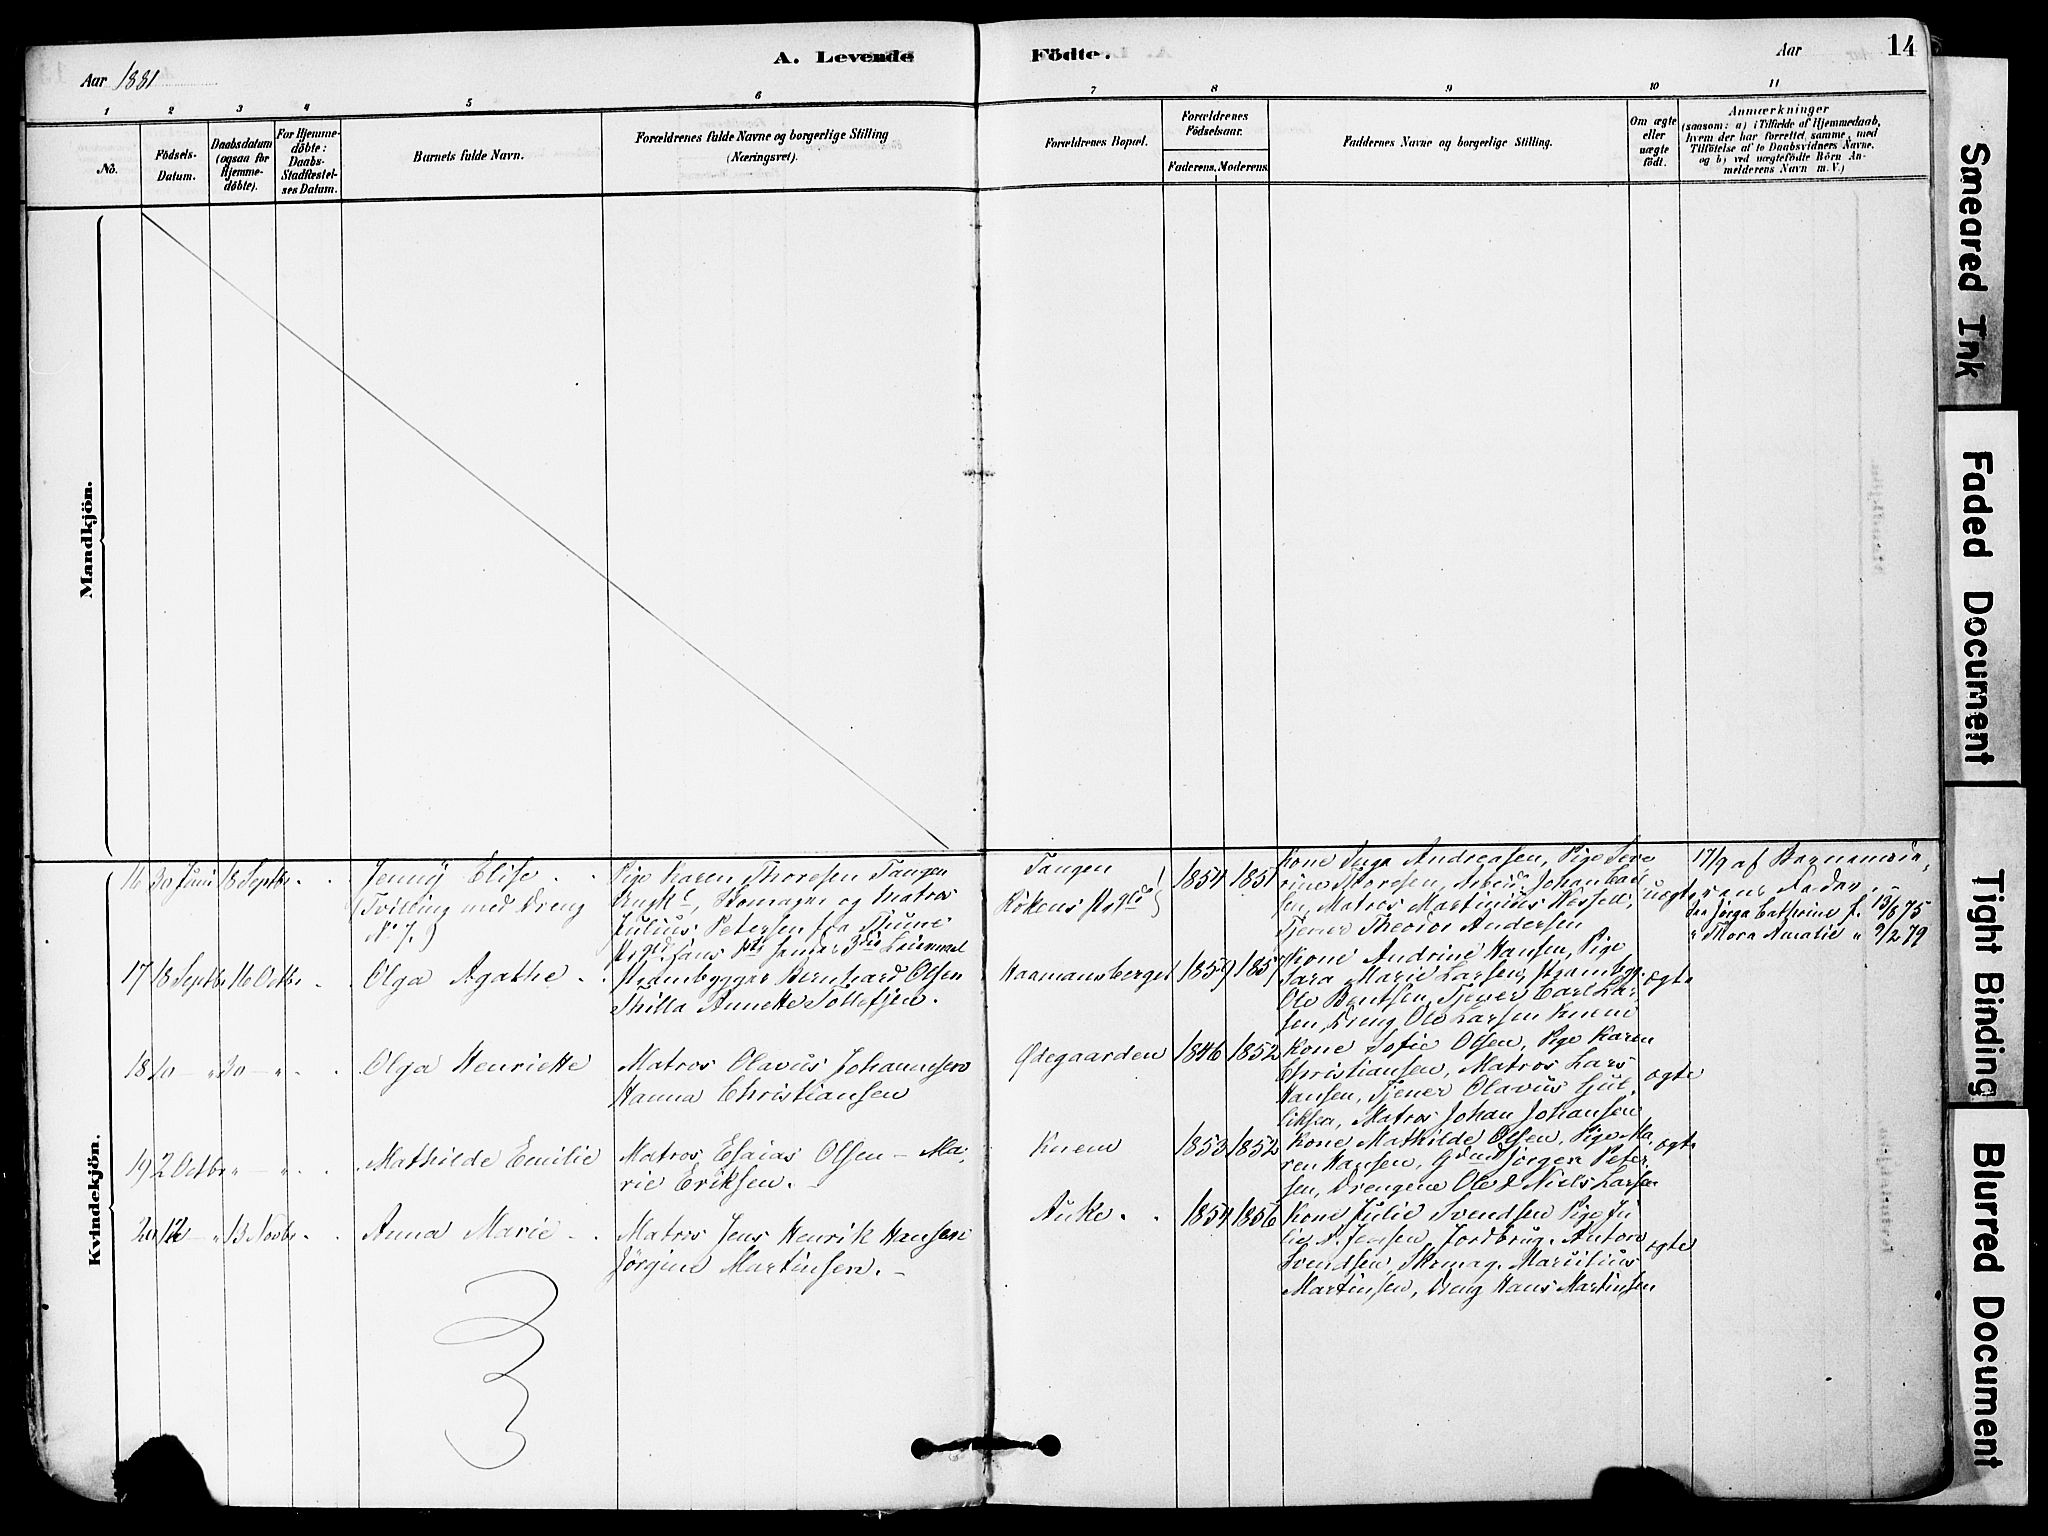 A. Levende
Födte.
Aar
14
Aar 1881
1
2
3
4
5
6
7
8
9
10
11
No.
Födsels-
Datum.
Daabsdatum
(ogsaa for
Hjemme-
døbte).
For Hjemme-
døbte:
Daabs-
Stadfæstel-
ses Datum.
Barnets fulde Navn.
Forældrenes fulde Navne og borgerlige Stilling
(Næringsvei).
Forældrenes Bopæl.
Forældrenes
Födselsaar.
Faderens.
Moderens.
Faddernes Navne og borgerlige Stilling.
Om ægte
eller
uægte
födt.
Anmærkninger
(saasom: a) i Tilfælde af Hjemmedaab,
hvem der har forrettet samme, med
Tilföielse af to Daabsvidners Navne,
og b) ved uægtefödte Börn An-
melderens Navn m. V.)
Mandkjön.
Kvindekjön.
16 30 Juni 18 Septbr
Jenny Elise
(Tvilling med Dreng
No 7.)
Pige Karen Thoresen Tangen
Ungk., Skomager og Matros
Julius Petersen fra
Tangen
Rökens
1854 1851
Kone Inga Andreasen, Pige Seve
rine Thoresen, Johan Carl
sen, Matros Martinius
Tjener Theodor Andersen
uægte
17/9 af Barnemoder
13/8 75
Thora Amalie " 9/2 79
17 18 Septbr 16 Octbr
Olga Agathe
Strandbygger Bernhard Olsen
Thilla Annette Tollefsen.
Haamansberget
1859 1857
Kone Andrine Hansen, Pige
Sara Marie Larsen, Strandbyg.
Ole Bentsen, Tjener Carl Lar-
sen, Dreng Ole Larsen Knem
ægte
18 10 — " 30 — "
Olga Henriette
Matros Olavus Johannsen
Hanna Christiansen
Ødegaarden
1846 1852
Kone Sofie Olsen, Pige Karen
Christiansen, Matros Lars
Hansen, Tjener Olavus Gul
liksen, Matros Johan Johansen
ægte
19 2 Octbr " — "
Mathilde Emilie
Matros Esaias Olsen — Ma-
rie Eriksen.
Knem
1853 1852
Kone Mathilde Olsen, Pige Ma
ren Hansen, Jörgen Peter-
sen, Drengene Ole & Niels Larsen
ægte
20 12 — " 13 Novbr
Anna Marie
Matros Jens Henrik Hansen
Jörgine Martinsen.
Auke
1854 1856
Kone Julie Svendsen Pige Ju
lie A. Jensen, Jordbrug. Anton
Svendsen, Skomag. Marcilius
Martinsen, Dreng Hans Martinsen
ægte
Smeared Ink
Faded Document
Tight Binding
Blurred Document